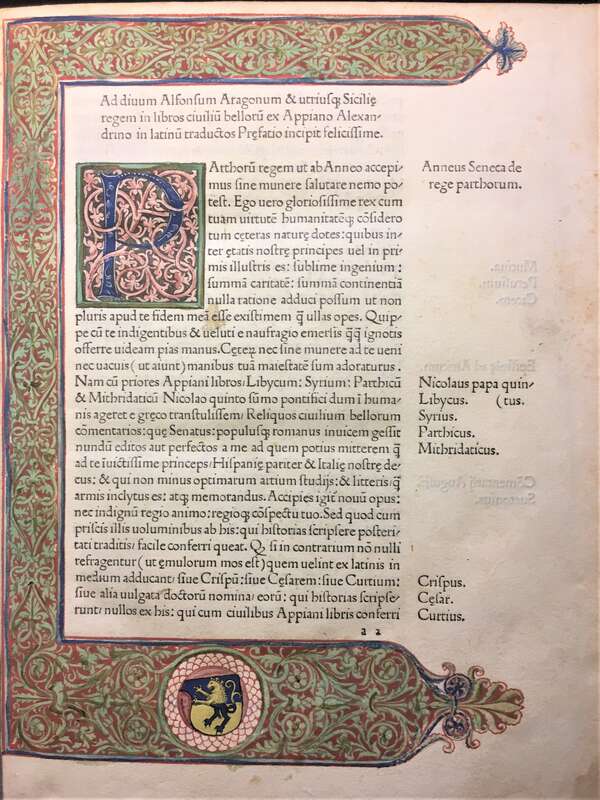 Ad diuum Alfonsum Aragonum & utriusq; Sicilię
regem in libros ciuiliū bellorū ex Appiano Alexan-
drino in latinū traductos Pręfatio incipit felicissime.
PArthorū regem ut ab Anneo accepi-
mus sine munere salutare nemo po-
test. Ego uero gloriosissime rex cum
tuam uirtutē humanitatēq; cōsidero
tum cęteras naturę dotes: quibus in-
ter ętatis nostrę principes uel in pri-
mis illustris es: sublime ingenium:
summā caritatē: summā continentiā
nulla ratione adduci possum ut non
pluris apud te fidem meā esse existimem q̄ ullas opes. Quip-
pe cū te indigentibus & ueluti e naufragio emersis q̄q̄ ignotis
offerre uideam pias manus. Cęteꝝ nec sine munere ad te ueni
nec uacuis (ut aiunt) manibus tuā maiestatē sum adoraturus.
Nam cū priores Appiani libros/ Libycum: Syrium: Parthicū
& Mithridaticū Nicolao quinto sūmo pontifici dum ī huma-
nis ageret e gręco transtulissem/ Reliquos ciuilium bellorum
cōmentarios: quę Senatus: populusq; romanus inuicem gessit
nundū editos aut perfectos a me ad quem potius mitterem q̄
ad te īuictissime princeps/ Hispanię pariter & Italię nostrę de-
cus: & qui non minus optimarum artium studijs: & litteris: q̄
armis inclytus es: atq; memorandus. Accipies igit᷑ nouū opus:
nec indignū regio animo: regioq; cōspectu tuo. Sed quod cum
priscis illis uoluminibus ab his: qui historias scripsere posteri-
tati traditis/ facile conferri queat. Q̨ si in contrarium nō nulli
refragentur (ut ęmulorum mos est) quem uelint ex latinis in
medium adducant/ siue Crispū: siue Cęsarem: siue Curtium:
siue alia uulgata doctorū nomina/ eorū: qui historias scripse-
runt/ nullos ex his: qui cum ciuilibus Appiani libris conferri
a a
Anneus Seneca de
rege parthorum.
Nicolaus papa quin-
Libycus. (tus.
Syrius.
Parthicus.
Mithridaticus.
Crispus.
Cęsar.
Curtius.